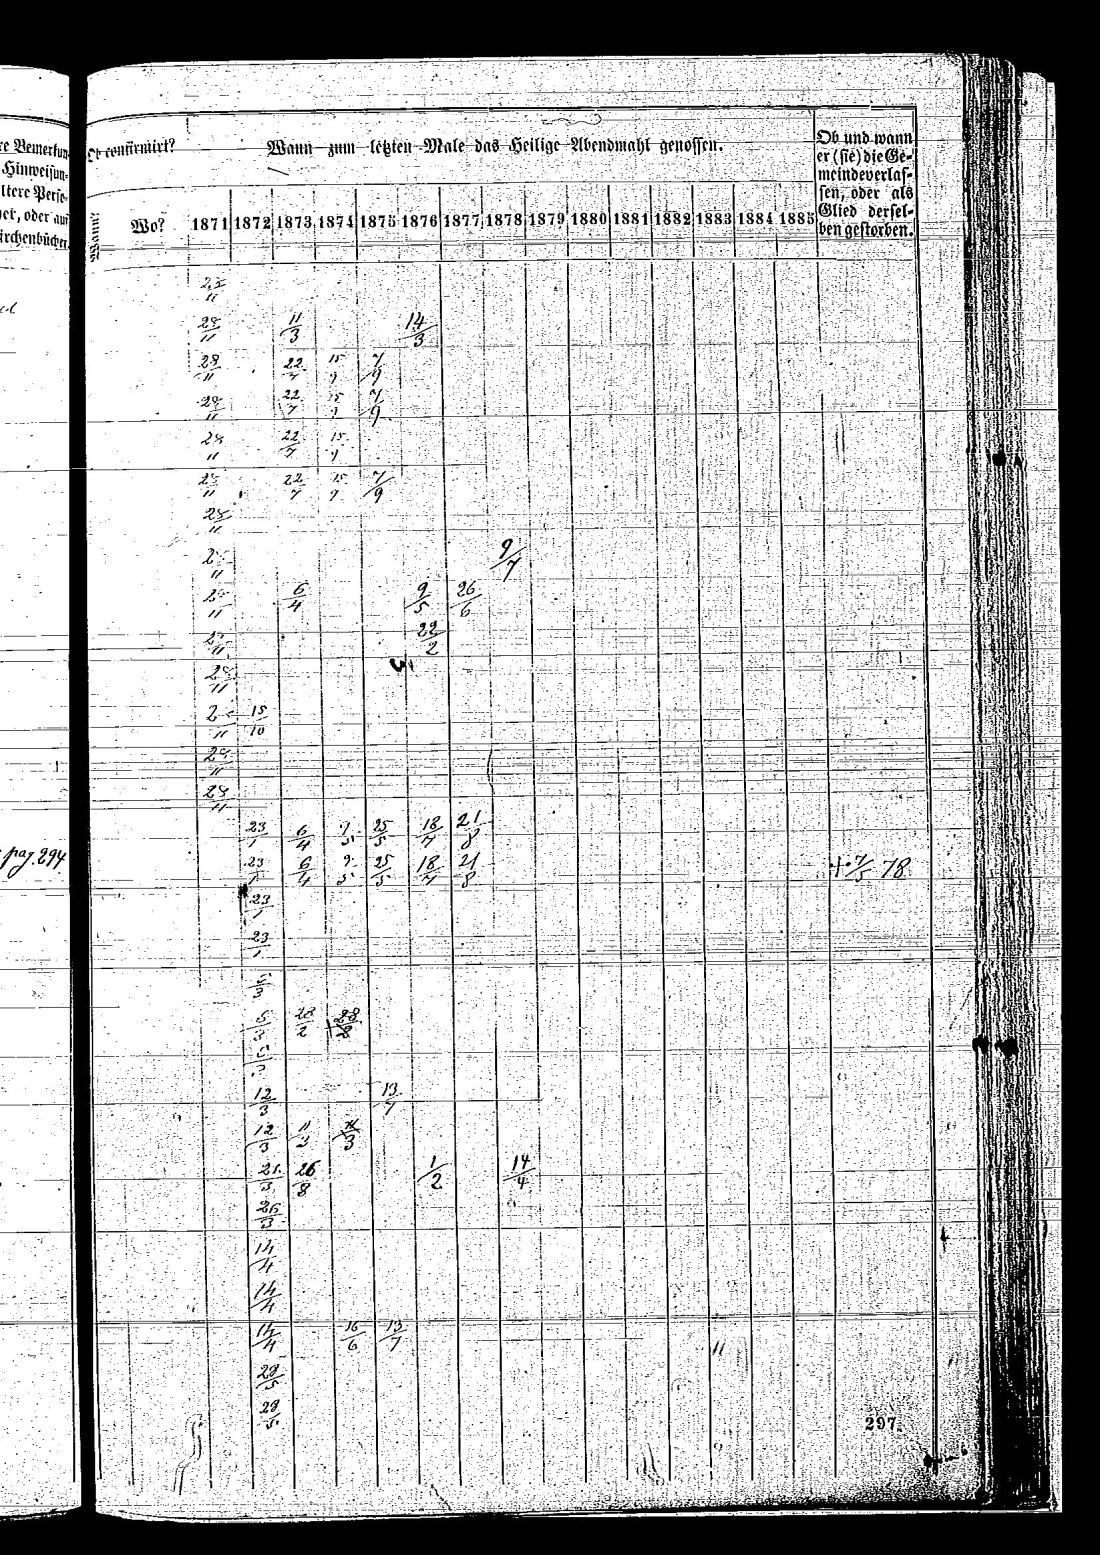 re Bemerkun-
Hinweisun-
ltere Perso-
get, oder auf
irchenbücher.
pag. 294.
Ob confirmirt?
Wann?
Wo?
Wann zum letzten Male das Heilige Abendmahl genossen.
1871 1872 1873 1874 1875 1876 1877 1878 1879 1880 1881 1882 1883 1884 1885
Ob und wann
er (sie) die Ge-
meinde verlas-
sen, oder als
Glied dersel-
ben gestorben.
28/11
28/11 11/3 14/3
28/11 22/7 15/9 7/9
28/11 22/7 15/9 7/9
28/11 22/7 15/9
28/11 22/7 15/9 7/9
28/11
28/11 9/7
28/11 6/4 9/5 26/6
28/11 22/2
28/11
28/11 15/10
28/11
28/11
23/1 6/4 9/5 25/5 18/7 21/8
23/1 6/4 9/5 25/5 18/7 21/8 + 7/5 78
23/1
23/1
5/3
5/3 28/2
12/3 13/7
12/3 11/3
26/8 1/2 14/4
26/3
14/4
14/4
14/4 16/6 13/7
29/5
29/5
297.